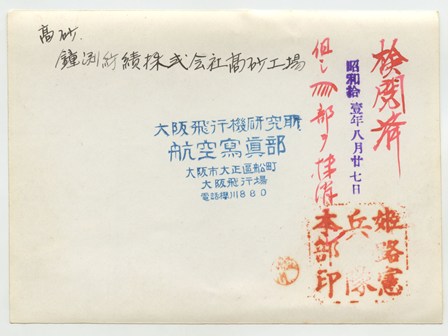 高砂.
鐘渕紡績株式会社高砂工場
大阪飛行機研究所
航空寫眞部
大阪市大正區船町
大阪飛行場
電話櫻川880
検閲済
昭和拾壹年八月廿七日
但シ 部ヲ抹消
姫路憲
兵隊
本部印